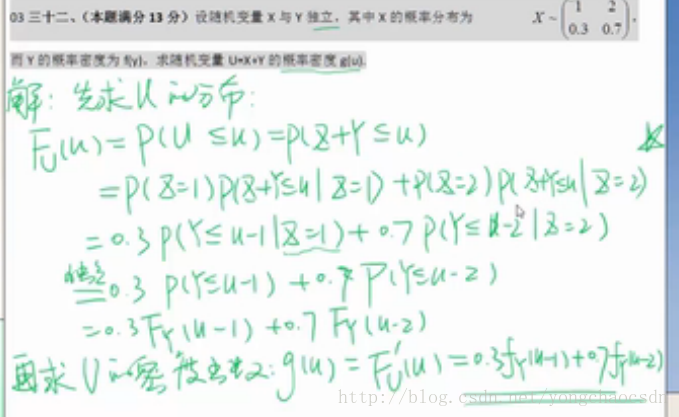 03 三十二、（本题满分 13 分）设随机变量 X 与 Y 独立，其中 X 的概率分布为 X ~ ( 1 2
0.3 0.7 ),
而 Y 的概率密度为 f(y)，求随机变量 U=X+Y 的概率密度 g(u).
解: 先求 U 的分布:
F_U(u) = P(U ≤ u) = P(X+Y ≤ u)
= P(X=1) P(X+Y≤u | X=1) + P(X=2) P(X+Y≤u | X=2)
= 0.3 P(Y≤u-1 | X=1) + 0.7 P(Y≤u-2 | X=2)
独立
= 0.3 P(Y≤u-1) + 0.7 P(Y≤u-2)
= 0.3 F_Y(u-1) + 0.7 F_Y(u-2)
再求 U 的密度函数: g(u) = F_U'(u) = 0.3f_Y(u-1)+0.7f_Y(u-2)
http://blog.csdn.net/yongchaocsdn